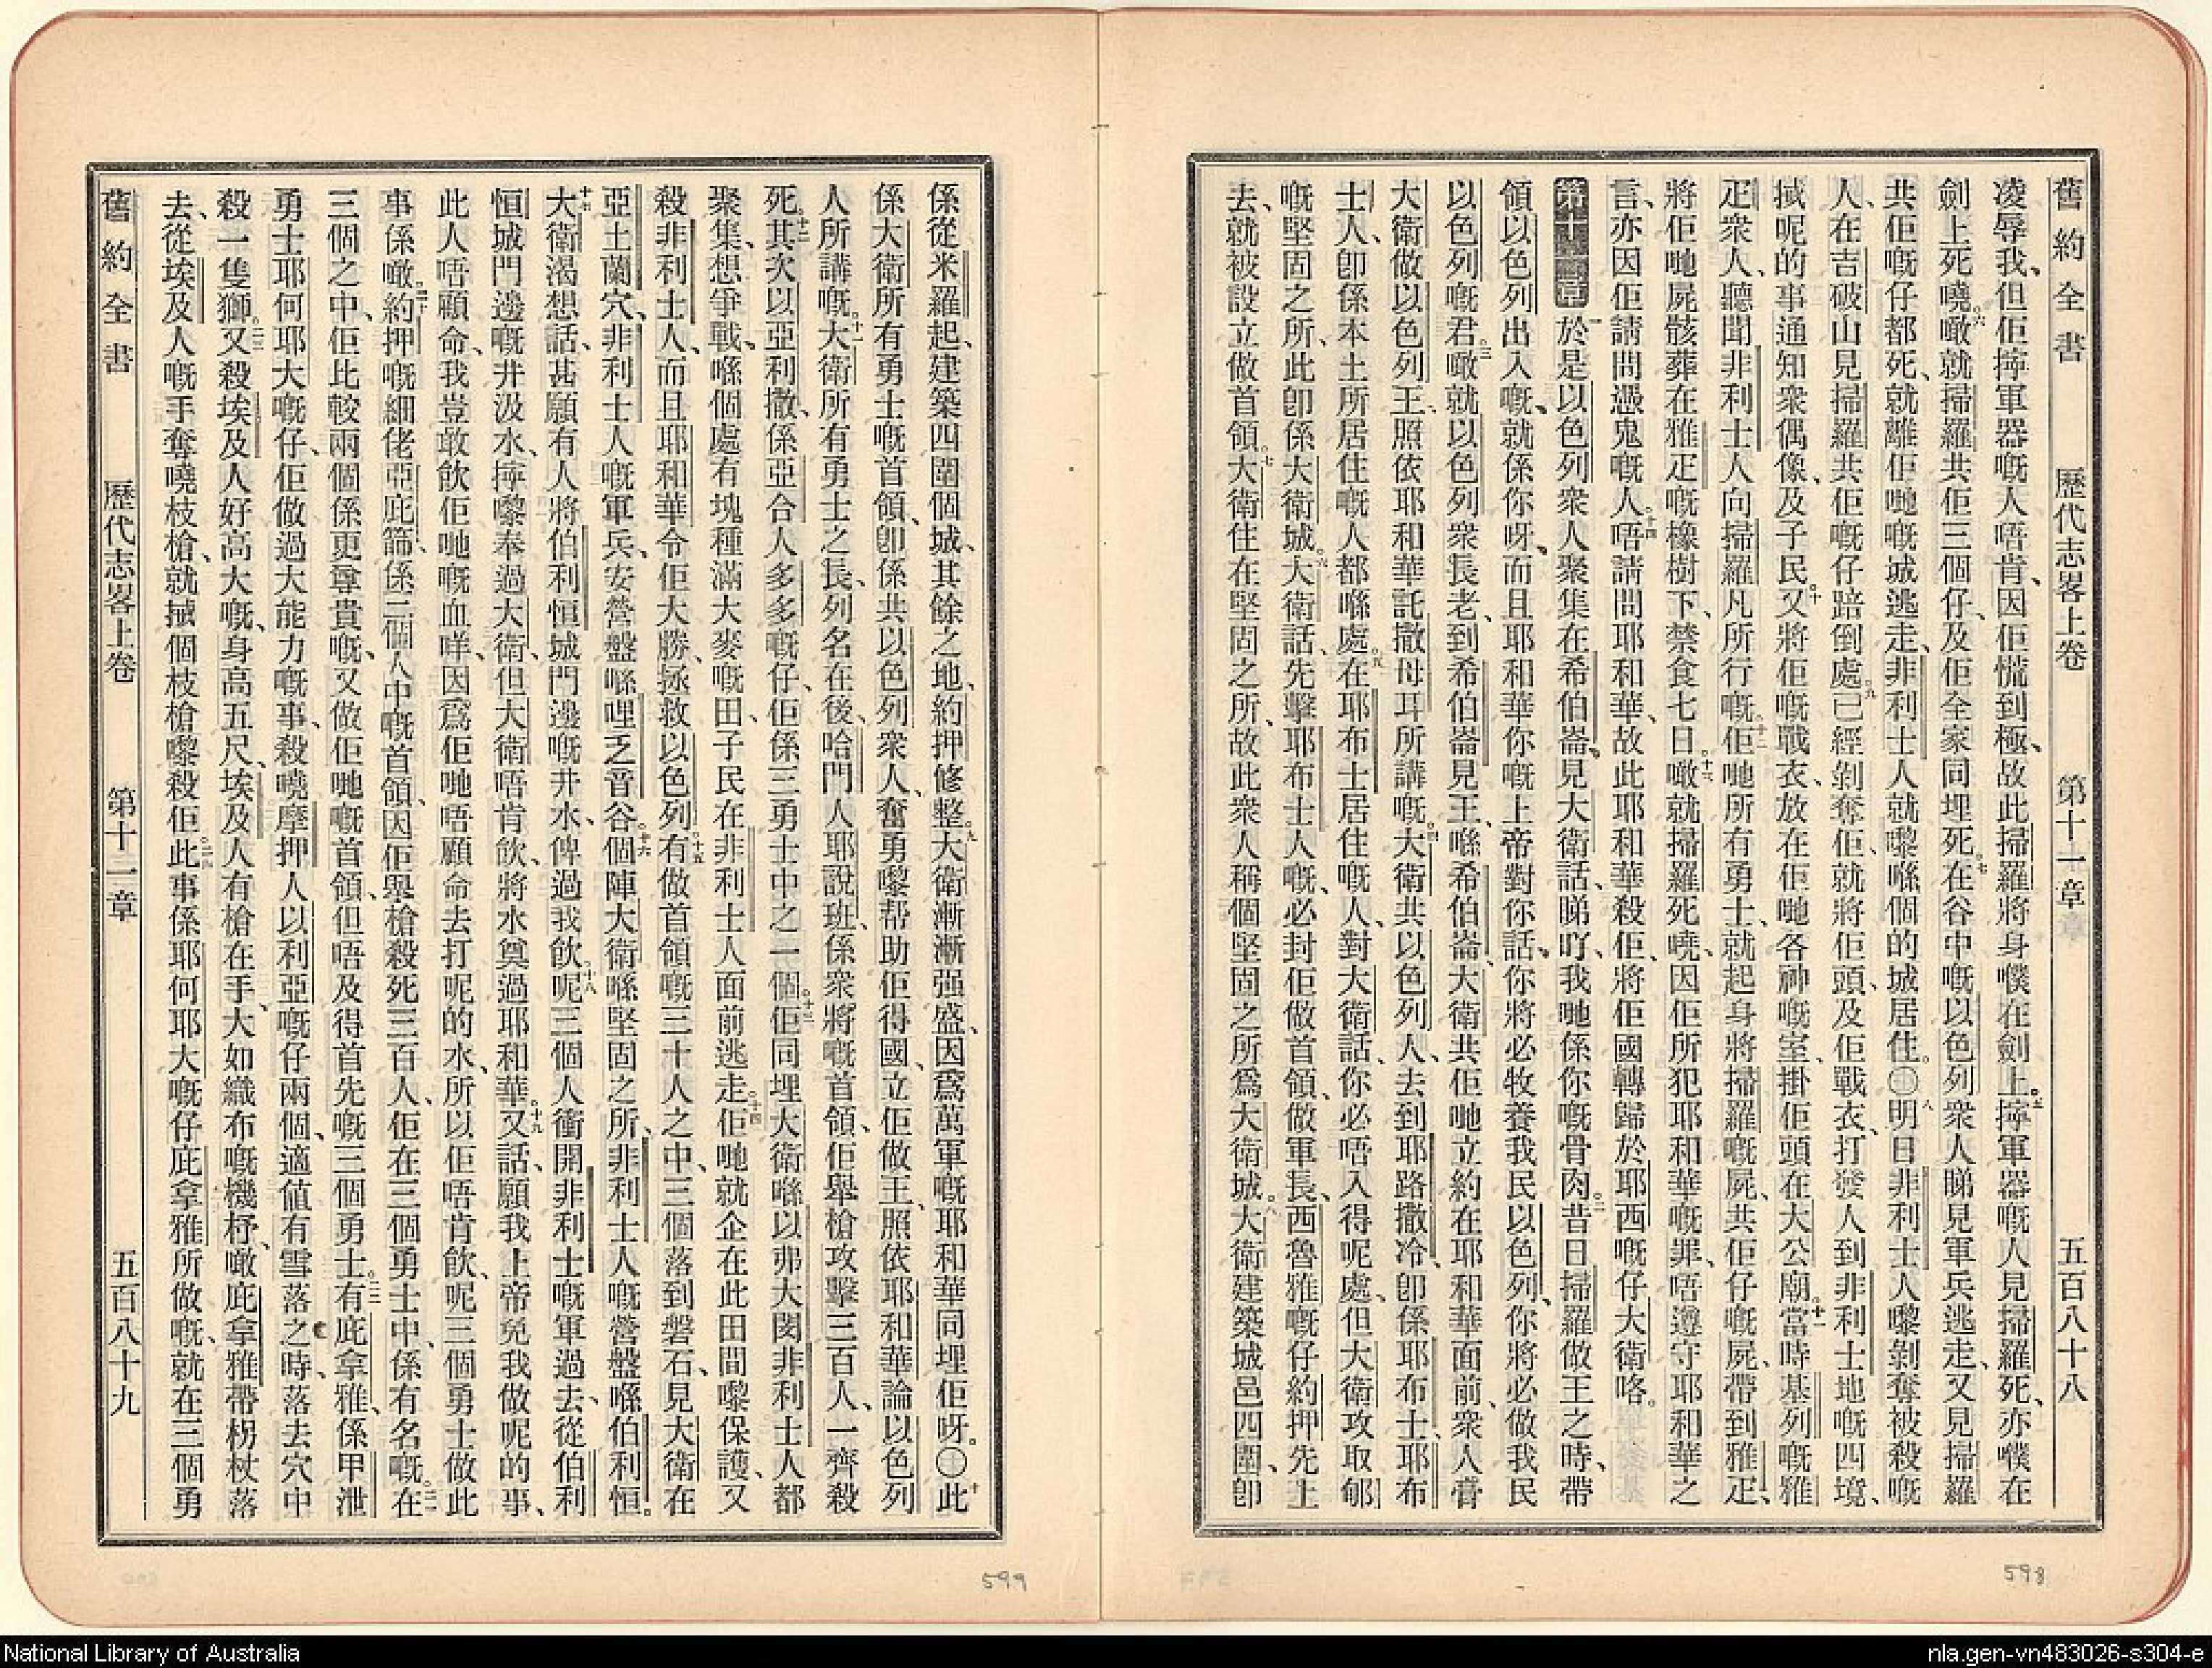 舊約全書 歷代志畧上卷 第十一章 五百八十八
凌辱我、但佢擰軍器嘅人唔肯、因佢慌到極、故此掃羅將身噗在劍上。五擰軍器嘅人見掃羅死、亦噗在
劍上死嘵。六噉就掃羅共佢三個仔、及佢全家同埋死。七在谷中嘅以色列衆人睇見軍兵逃走、又見掃羅
共佢嘅仔都死、就離佢哋嘅城逃走、非利士人就嚟喺個的城居住。〇八明日非利士人嚟剝奪被殺嘅
人、在吉破山見掃羅共佢嘅仔踣倒處。九已經剝奪佢、就將佢頭、及佢戰衣、打發人到非利士地嘅四境、
搣呢的事通知衆偶像、及子民。十又將佢嘅戰衣、放在佢哋各神嘅室、掛佢頭在大公廟。十一當時基列嘅雅
疋衆人、聽聞非利士人向掃羅凡所行嘅。十二佢哋所有勇士、就起身將掃羅嘅屍、共佢仔嘅屍、帶到雅疋、
將佢哋屍骸葬在雅疋嘅橡樹下、禁食七日。十三噉就掃羅死嘵、因佢所犯耶和華嘅罪、唔遵守耶和華之
言、亦因佢請問憑鬼嘅人。十四唔請問耶和華、故此耶和華殺佢、將佢國轉歸於耶西嘅仔大衛咯。
第十一章 一於是以色列衆人聚集在希伯崙、見大衛話、睇吖、我哋係你嘅骨肉。二昔日掃羅做王之時、帶
領以色列出入嘅、就係你呀、而且耶和華你嘅上帝對你話、你將必牧養我民以色列、你將必做我民
以色列嘅君。三噉就以色列衆長老、到希伯崙見王、喺希伯崙、大衛共佢哋立約在耶和華面前、衆人膏
大衛做以色列王、照依耶和華託撒母耳所講嘅。四大衛共以色列人、去到耶路撒冷、卽係耶布士、耶布
士人、卽係本土所居住嘅人都喺處。五在耶布士居住嘅人、對大衛話、你必唔入得呢處、但大衛攻取郇
嘅堅固之所、此卽係大衛城。六大衛話、先擊耶布士人嘅、必封佢做首領、做軍長、西魯雅嘅仔約押先上
去、就被設立做首領。七大衛住在堅固之所、故此衆人稱個堅固之所爲大衛城。八大衛建築城邑四圍、卽
598
係從米羅起、建築四圍個城、其餘之地、約押修整。九大衛漸漸强盛、因爲萬軍嘅耶和華同埋佢呀。〇十此
係大衛所有勇士嘅首領、卽係共以色列衆人、奮勇嚟帮助佢得國、立佢做王、照依耶和華論以色列
人所講嘅。十一大衛所有勇士之長、列名在後、哈門人耶說班、係衆將嘅首領、佢舉槍攻擊三百人、一齊殺
死。十二其次以亞利撒、係亞合人多多嘅仔、佢係三勇士中之一個。十三佢同埋大衛喺以弗大閔、非利士人都
聚集、想爭戰、喺個處有塊種滿大麥嘅田、子民在非利士人面前逃走。十四佢哋就企在此田間嚟保護、又
殺非利士人、而且耶和華令佢大勝、拯救以色列。十五有做首領嘅三十人之中、三個落到磐石、見大衛在
亞土蘭穴、非利士人嘅軍兵、安營盤喺哩乏音谷。十六個陣大衛喺堅固之所、非利士人嘅營盤喺伯利恒。
十七大衛渴想話、甚願有人將伯利恒城門邊嘅井水、俾過我飲。十八呢三個人衝開非利士嘅軍過去、從伯利
恒城門邊嘅井汲水、擰嚟奉過大衛、但大衛唔肯飲、將水奠過耶和華。十九又話、願我上帝免我做呢的事、
此人唔顧命、我豈敢飮佢哋嘅血咩、因爲佢哋唔顧命去打呢的水、所以佢唔肯飮、呢三個勇士做此
事係噉。二十約押嘅細佬亞庇篩、係三個人中嘅首領、因佢舉槍殺死三百人、佢在三個勇士中、係有名嘅。二一在
三個之中、佢比較兩個係更尊貴嘅、又做佢哋嘅首領、但唔及得首先嘅三個勇士。二二有庇拿雅、係甲泄
勇士耶何耶大嘅仔、佢做過大能力嘅事、殺嘵摩押人以利亞嘅仔兩個、適值有雪落之時、落去穴中
殺一隻獅。二三又殺埃及人好高大嘅、身高五尺、埃及人有槍在手、大如織布嘅機杼、噉庇拿雅帶枴杖落
去、從埃及人嘅手奪嘵枝槍、就搣個枝槍嚟殺佢。二四此事係耶何耶大嘅仔庇拿雅所做嘅、就在三個勇
舊約全書 歷代志畧上卷 第十一章 五百八十九
599
National Library of Australia
nla.gen-vn483026-s304-e